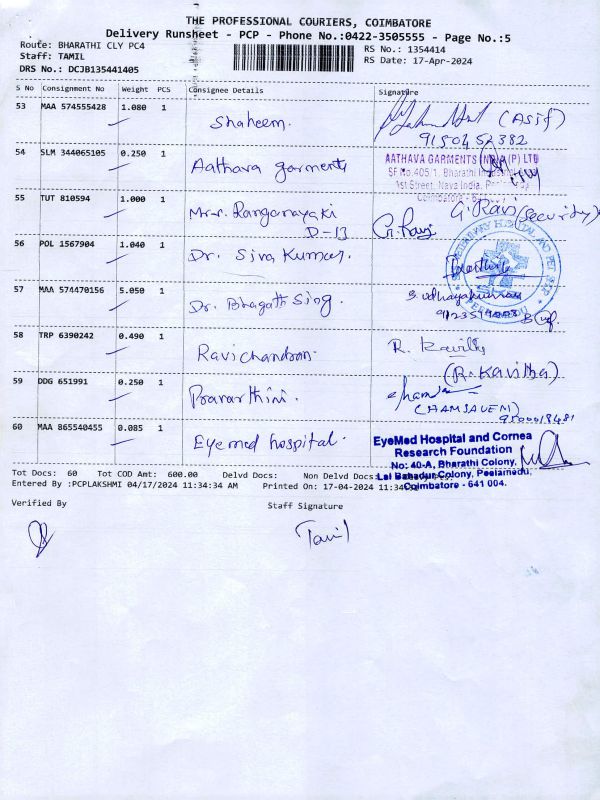 THE PROFESSIONAL COURIERS, COIMBATORE
Delivery Runsheet - PCP - Phone No.:0422-3505555 - Page No.:5
Route: BHARATHI CLY PC4
RS No.: 1354414
Staff: TAMIL
RS Date: 17-Apr-2024
DRS No.: DCJB135441405
S No Consignment No Weight PCS Consignee Details Signature
53 MAA 574555428 1.080 1 Shaheem. (Asif)
54 SLM 344065105 0.250 1 Aathava garments
AATHAVA GARMENTS (P) LTD
SF No.405/1, Bharathi
1st Street, Nava India,
Coimbatore -
55 TUT 810594 1.000 1 Mr.r. Ranganayaki
D-13 G.Ravi G.Ravi (Security)
56 POL 1567904 1.040 1 Dr. Siva Kumar.
57 MAA 574470156 5.050 1 Dr. Bhagath Sing. S. udhayakumar
58 TRP 6390242 0.490 1 Ravichandran. R. Kavitha
(R. Kavitha)
59 DDG 651991 0.250 1 Pravarthini.
(CHAMSAVENI)
60 MAA 865540455 0.085 1 Eyemed hospital.
EyeMed Hospital and Cornea
Research Foundation
No: 40-A, Bharathi Colony,
Lal Bahadur Colony, Peelamedu,
Coimbatore - 641 004.
Tot Docs: 60 Tot COD Amt: 600.00 Delvd Docs: Non Delvd Docs:
Entered By :PCPLAKSHMI 04/17/2024 11:34:34 AM Printed On: 17-04-2024
Verified By Staff Signature
Tamil